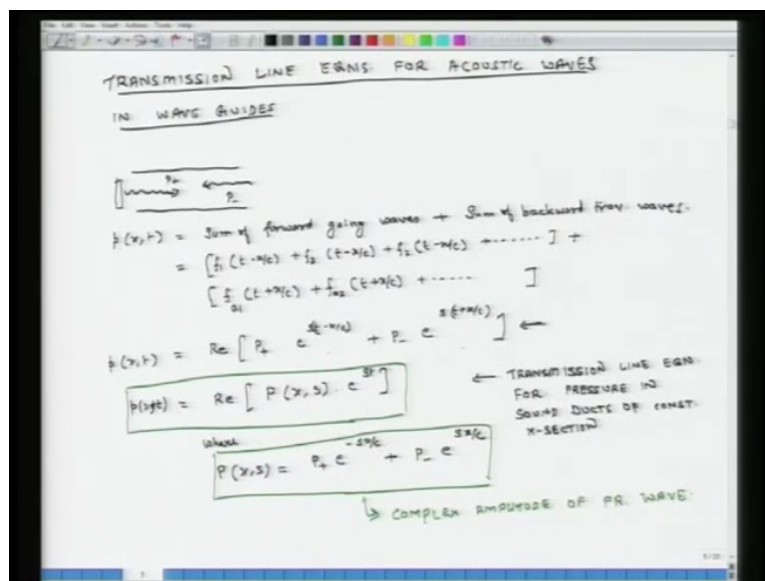 TRANSMISSION LINE EQNS. FOR ACOUSTIC WAVES
IN WAVE GUIDES
P+
P-
p(x,t) = Sum of forward going waves + Sum of backward trav. waves.
= [f1 (t-x/c) + f2 (t-x/c) + f3 (t-x/c) + ......] +
(t+x/c) + (t+x/c) + ...... ]
p(x,t) = Re [ P+ e^s(t-x/c) + P- e^s(t+x/c) ] ←
p(x,t) = Re [ P(x,s). e^st ]
← TRANSMISSION LINE EQN.
FOR PRESSURE IN
SOUND DUCTS OF CONST.
X-SECTION
where
P(x,s) = P+ e^-sx/c + P- e^sx/c
↳ COMPLEX AMPLITUDE OF PR. WAVE.